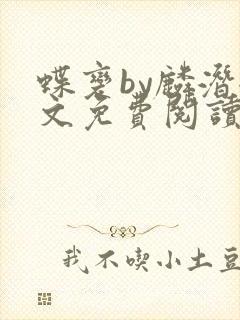 蝶褒by麟潛
文免費閱讀
我不喫小土豆